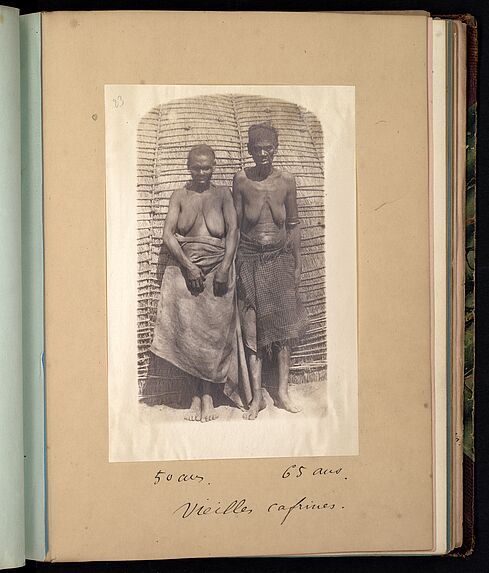 23
50 ans. 65 ans.
Vieilles cafrines.